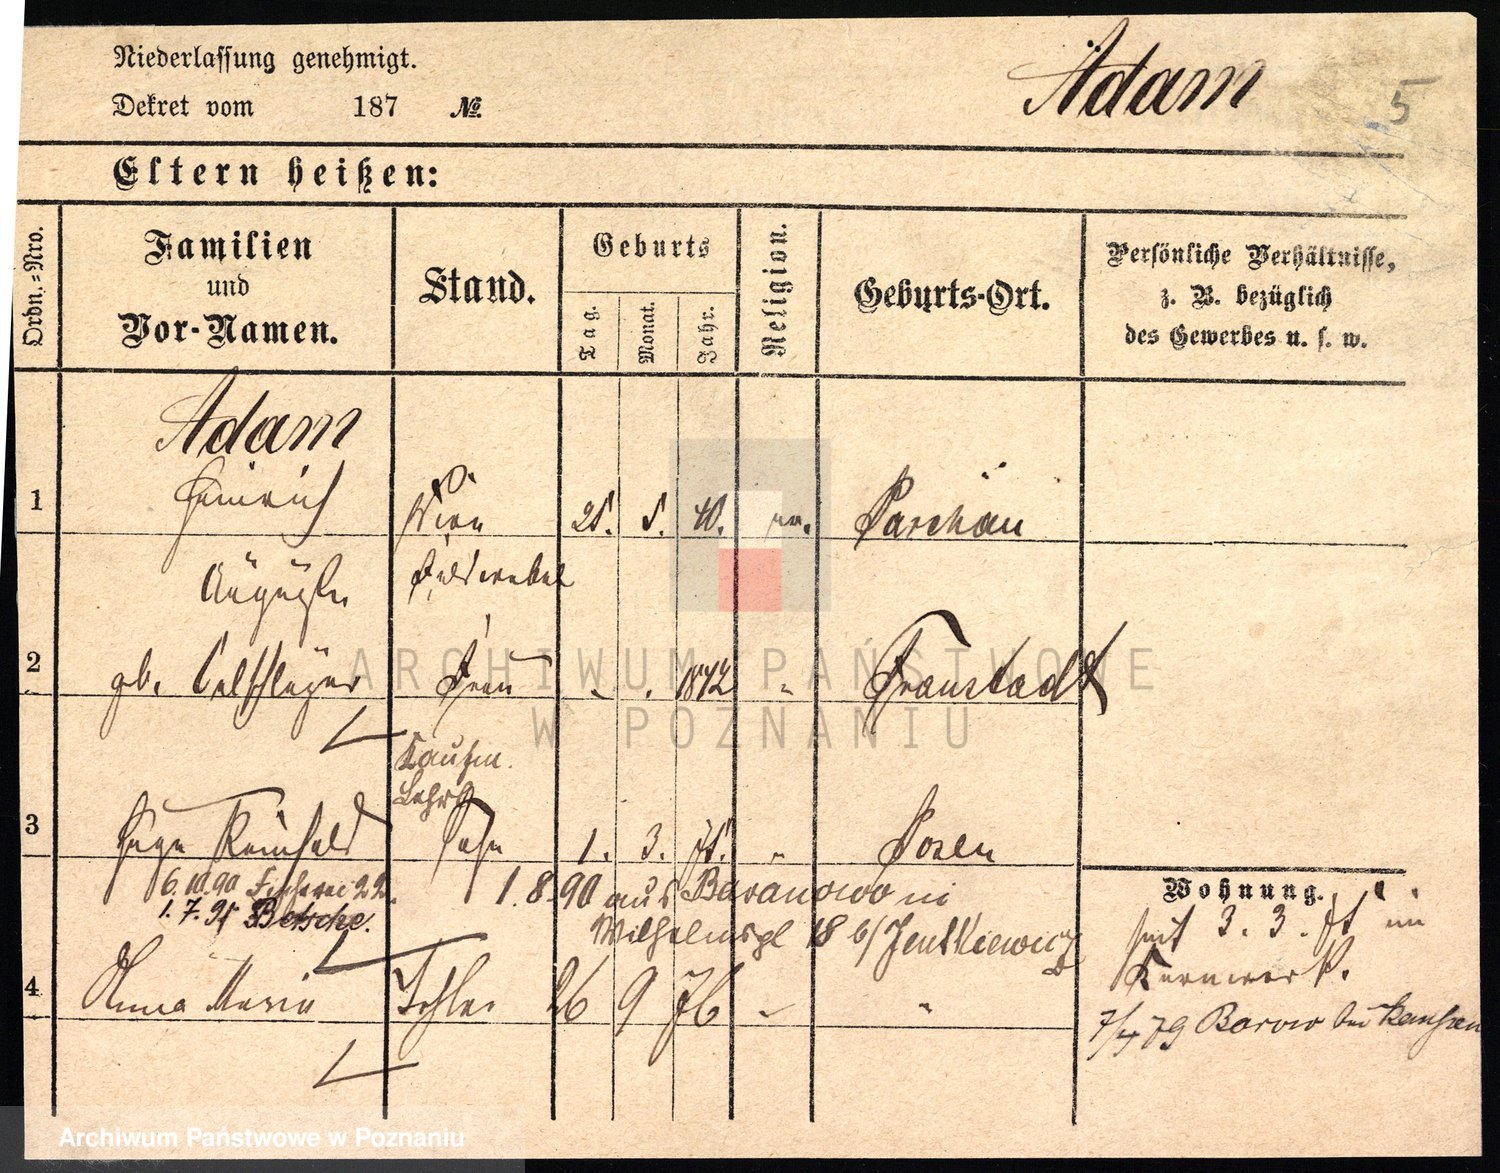 Niederlassung genehmigt.
Dekret vom 187 №.
Adam
5
Eltern heißen:
Ordn.-Nro.
Familien
und
Vor-Namen.
Stand.
Geburts
Tag.
Monat.
Jahr.
Religion.
Geburts-Ort.
Persönliche Verhältnisse,
z. B. bezüglich
des Gewerbes u. s. w.
Adam
1 Heinrich 25. 5. 40. Parchau
Feldwebel
2 gb. Frau 1842 " Fraustadt
Kaufm.
Lehrl
3 Hugo Reinhold Sohn 1. 3. 75. " Posen
6.10.90 22.
1.7.95 Betsche.
1.8.90 aus Baranowo in
Wilhelmspl 18 b/ Jentkiewicz
Wohnung.
seit 3. 3. 75 im
Kernwerk.
4 Anna Maria Tochter 26 9 76 " "
7/4 79 Borow bei
ARCHIWUM PAŃSTWOWE
W POZNANIU
Archiwum Państwowe w Poznaniu